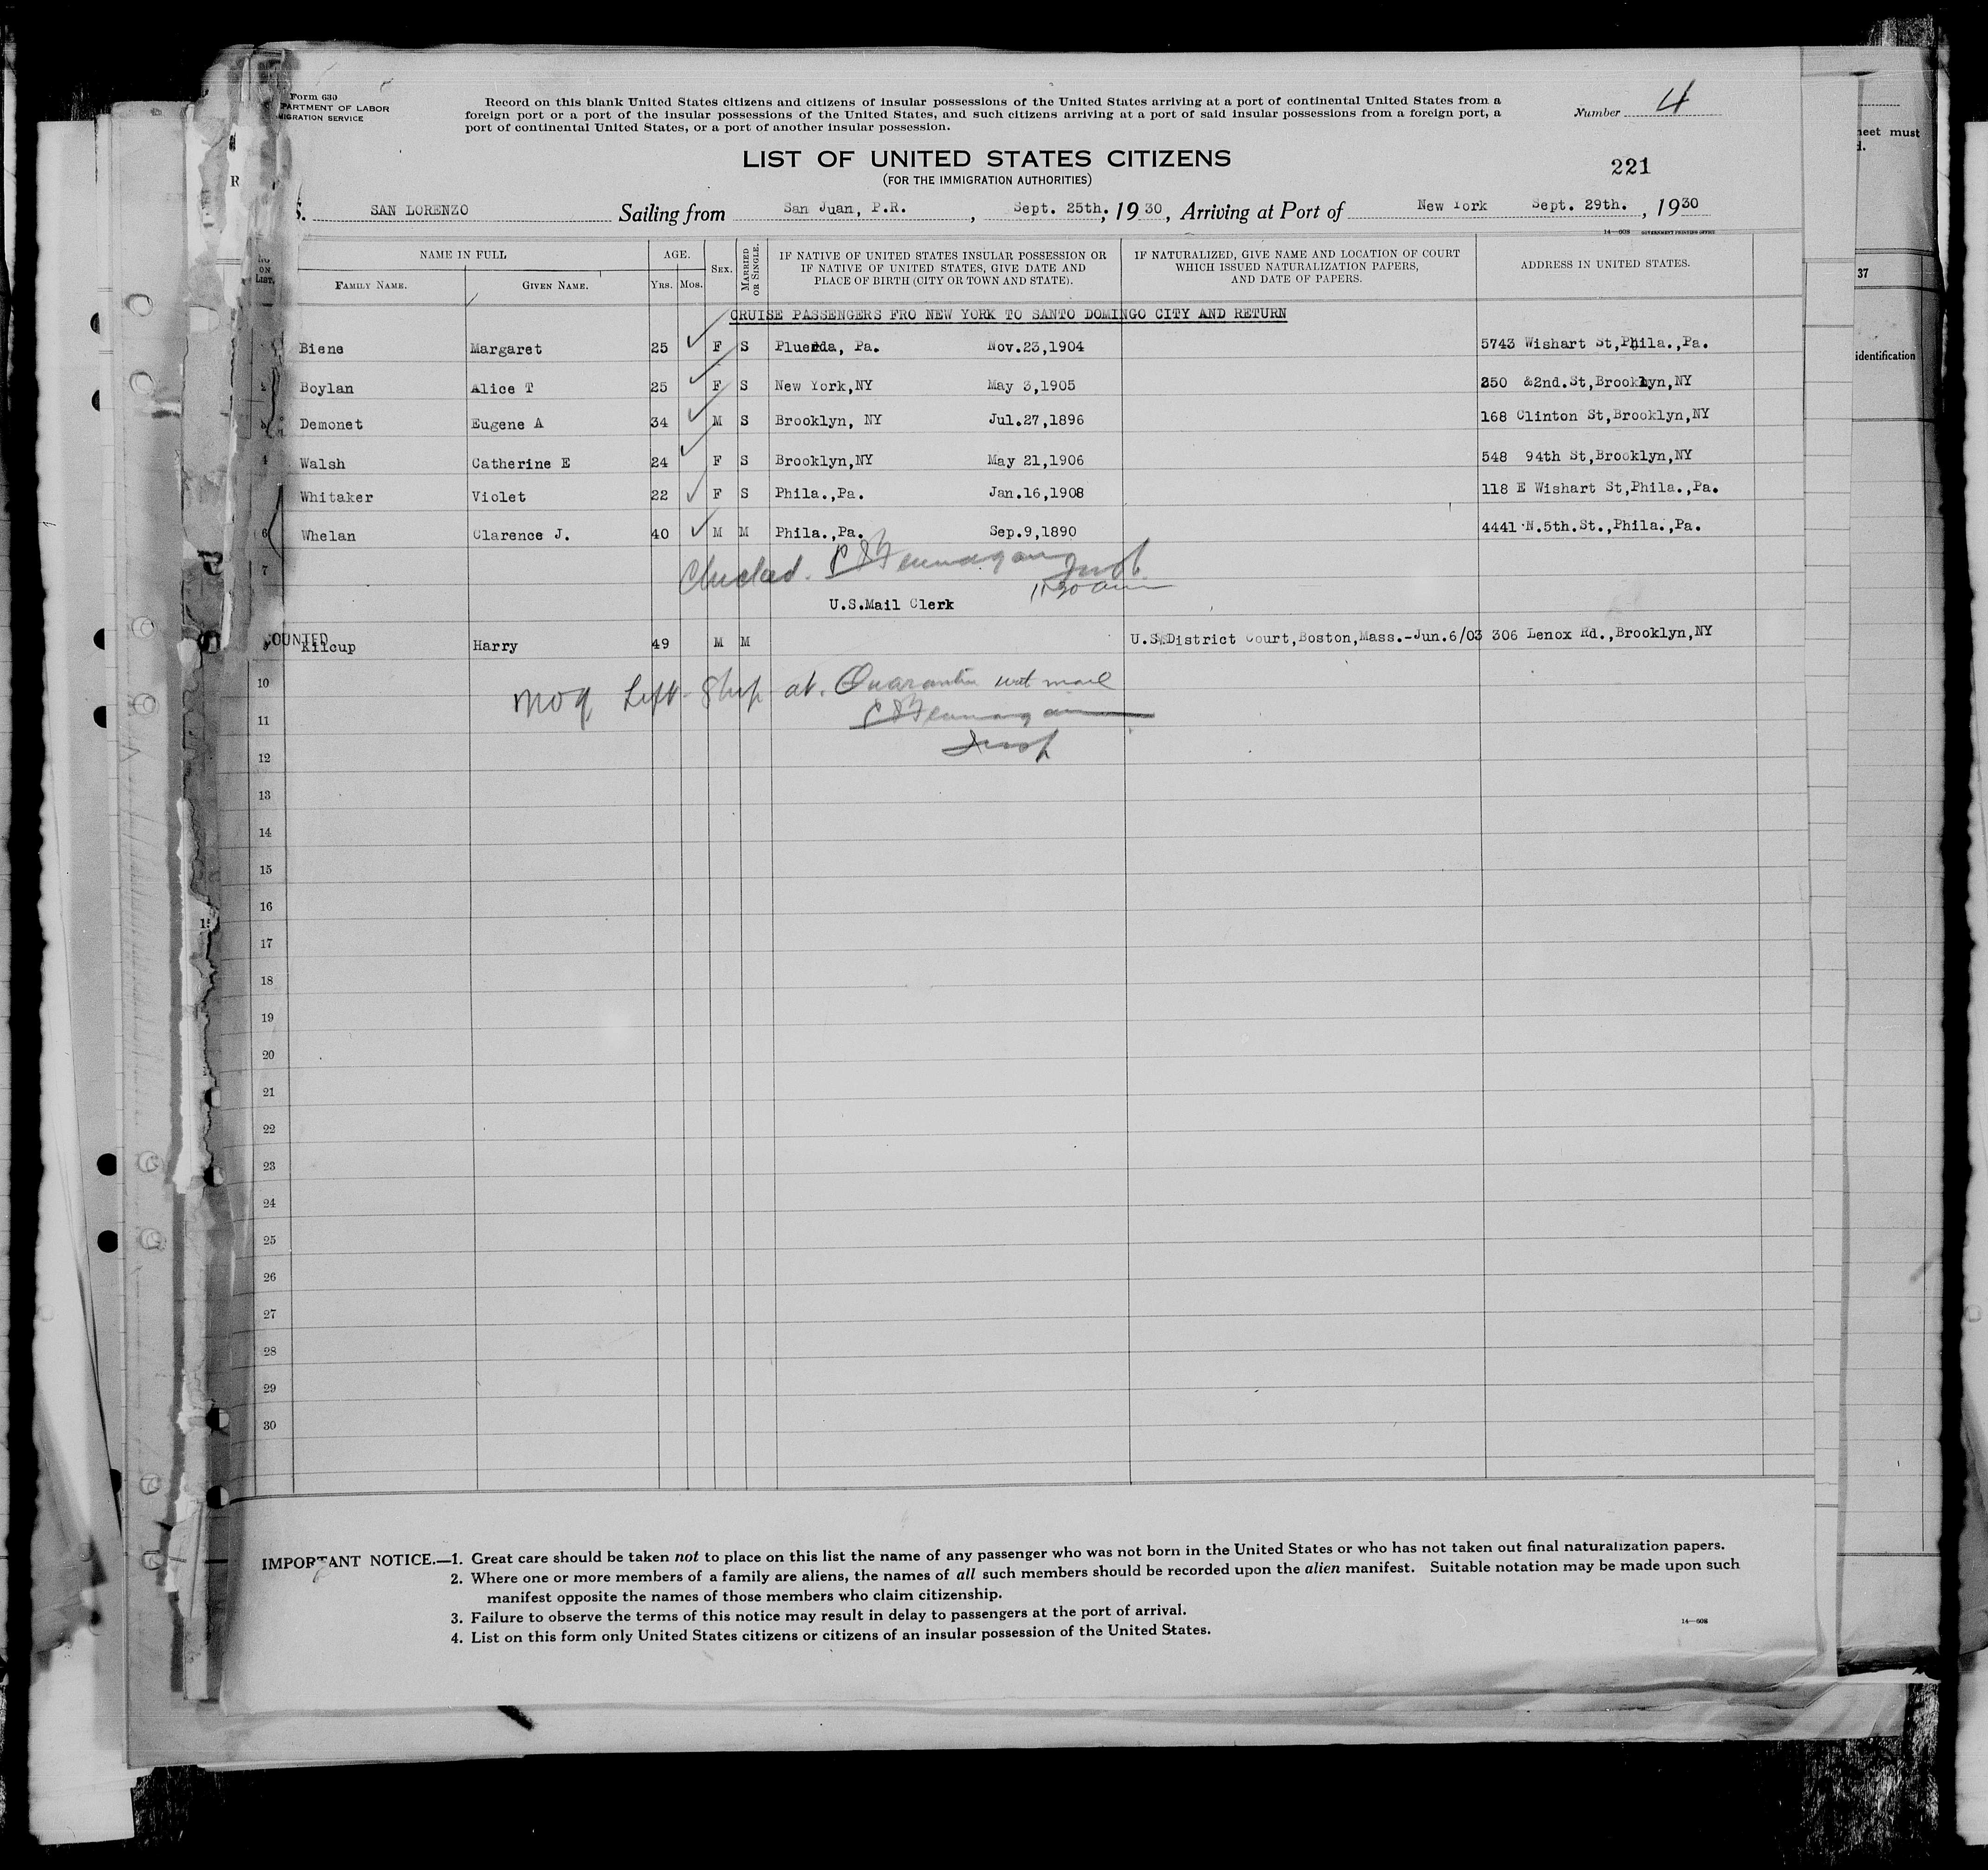 Form 630
PARTMENT OF LABOR
MIGRATION SERVICE
Record on this blank United States citizens and citizens of insular possessions of the United States arriving at a port of continental United States from a
foreign port or a port of the insular possessions of the United States, and such citizens arriving at a port of said insular possessions from a foreign port, a
port of continental United States, or a port of another insular possession.
Number 4
LIST OF UNITED STATES CITIZENS
(FOR THE IMMIGRATION AUTHORITIES)
221
S. SAN LORENZO Sailing from San Juan, P.R., Sept. 25th; 19 30, Arriving at Port of New York Sept. 29th., 19 30
14—608 GOVERNMENT PRINTING OFFICE
NO ON LIST.
NAME IN FULL
FAMILY NAME.
GIVEN NAME.
AGE.
YRS. MOS.
SEX.
MARRIED OR SINGLE.
IF NATIVE OF UNITED STATES INSULAR POSSESSION OR
IF NATIVE OF UNITED STATES, GIVE DATE AND
PLACE OF BIRTH (CITY OR TOWN AND STATE).
IF NATURALIZED, GIVE NAME AND LOCATION OF COURT
WHICH ISSUED NATURALIZATION PAPERS,
AND DATE OF PAPERS.
ADDRESS IN UNITED STATES.
CRUISE PASSENGERS FRO NEW YORK TO SANTO DOMINGO CITY AND RETURN
Biene Margaret 25 F S Pa. Nov.23,1904 5743 Wishart St,Phila.,Pa.
Boylan Alice T 25 F S New York,NY May 3,1905 &2nd.St,Brooklyn,NY
Demonet Eugene A 34 M S Brooklyn, NY Jul.27,1896 168 Clinton St,Brooklyn,NY
4 Walsh Catherine E 24 F S Brooklyn,NY May 21,1906 548 94th St,Brooklyn,NY
Whitaker Violet 22 F S Phila.,Pa. Jan.16,1908 118 E Wishart St,Phila.,Pa.
6 Whelan Clarence J. 40 M M Phila.,Pa. Sep.9,1890 4441 N.5th.St.,Phila.,Pa.
7
Insp.
11 30 am
U.S.Mail Clerk
OUNTED
Kilcup Harry 49 M M U.S.District Court,Boston,Mass.-Jun.6/03 306 Lenox Rd.,Brooklyn,NY
10
Left Ship at Quarantine wit mail
11
Insp
12
13
14
15
16
17
18
19
20
21
22
23
24
25
26
27
28
29
30
IMPORTANT NOTICE.—1. Great care should be taken not to place on this list the name of any passenger who was not born in the United States or who has not taken out final naturalization papers.
2. Where one or more members of a family are aliens, the names of all such members should be recorded upon the alien manifest. Suitable notation may be made upon such
manifest opposite the names of those members who claim citizenship.
3. Failure to observe the terms of this notice may result in delay to passengers at the port of arrival.
4. List on this form only United States citizens or citizens of an insular possession of the United States.
14—608
heet must
d.
37
identification